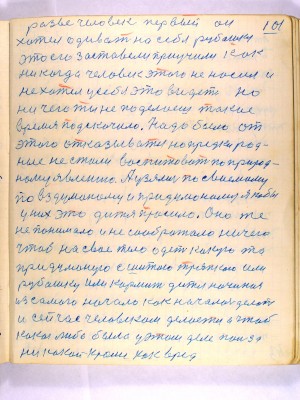 разве человек первый он 101
хотел одиват на себя рубашку
это его заставели приучили как
никогда человек этого не носил и
не хотел у себя это видеть но
ничего ты не поделаеш такие
время подскочило. Надо было от
этого отказыватся но предки род-
ные не стали воспитовать по природ-
ному явлению. А узялис по своемому
по вздуманому и придуманому. Якобы
у них это дитя просило. Оно же
не понимало и не соображало ничего
чтоб на свое тело одеть какую то
придуманую с шитого тряпок или
рубашку Или кормит дитя начиная
из самого начало как начали делать
и сейчас человеком делается а чтоб
какая либо была у этом деле польза
никакой кроми как вред